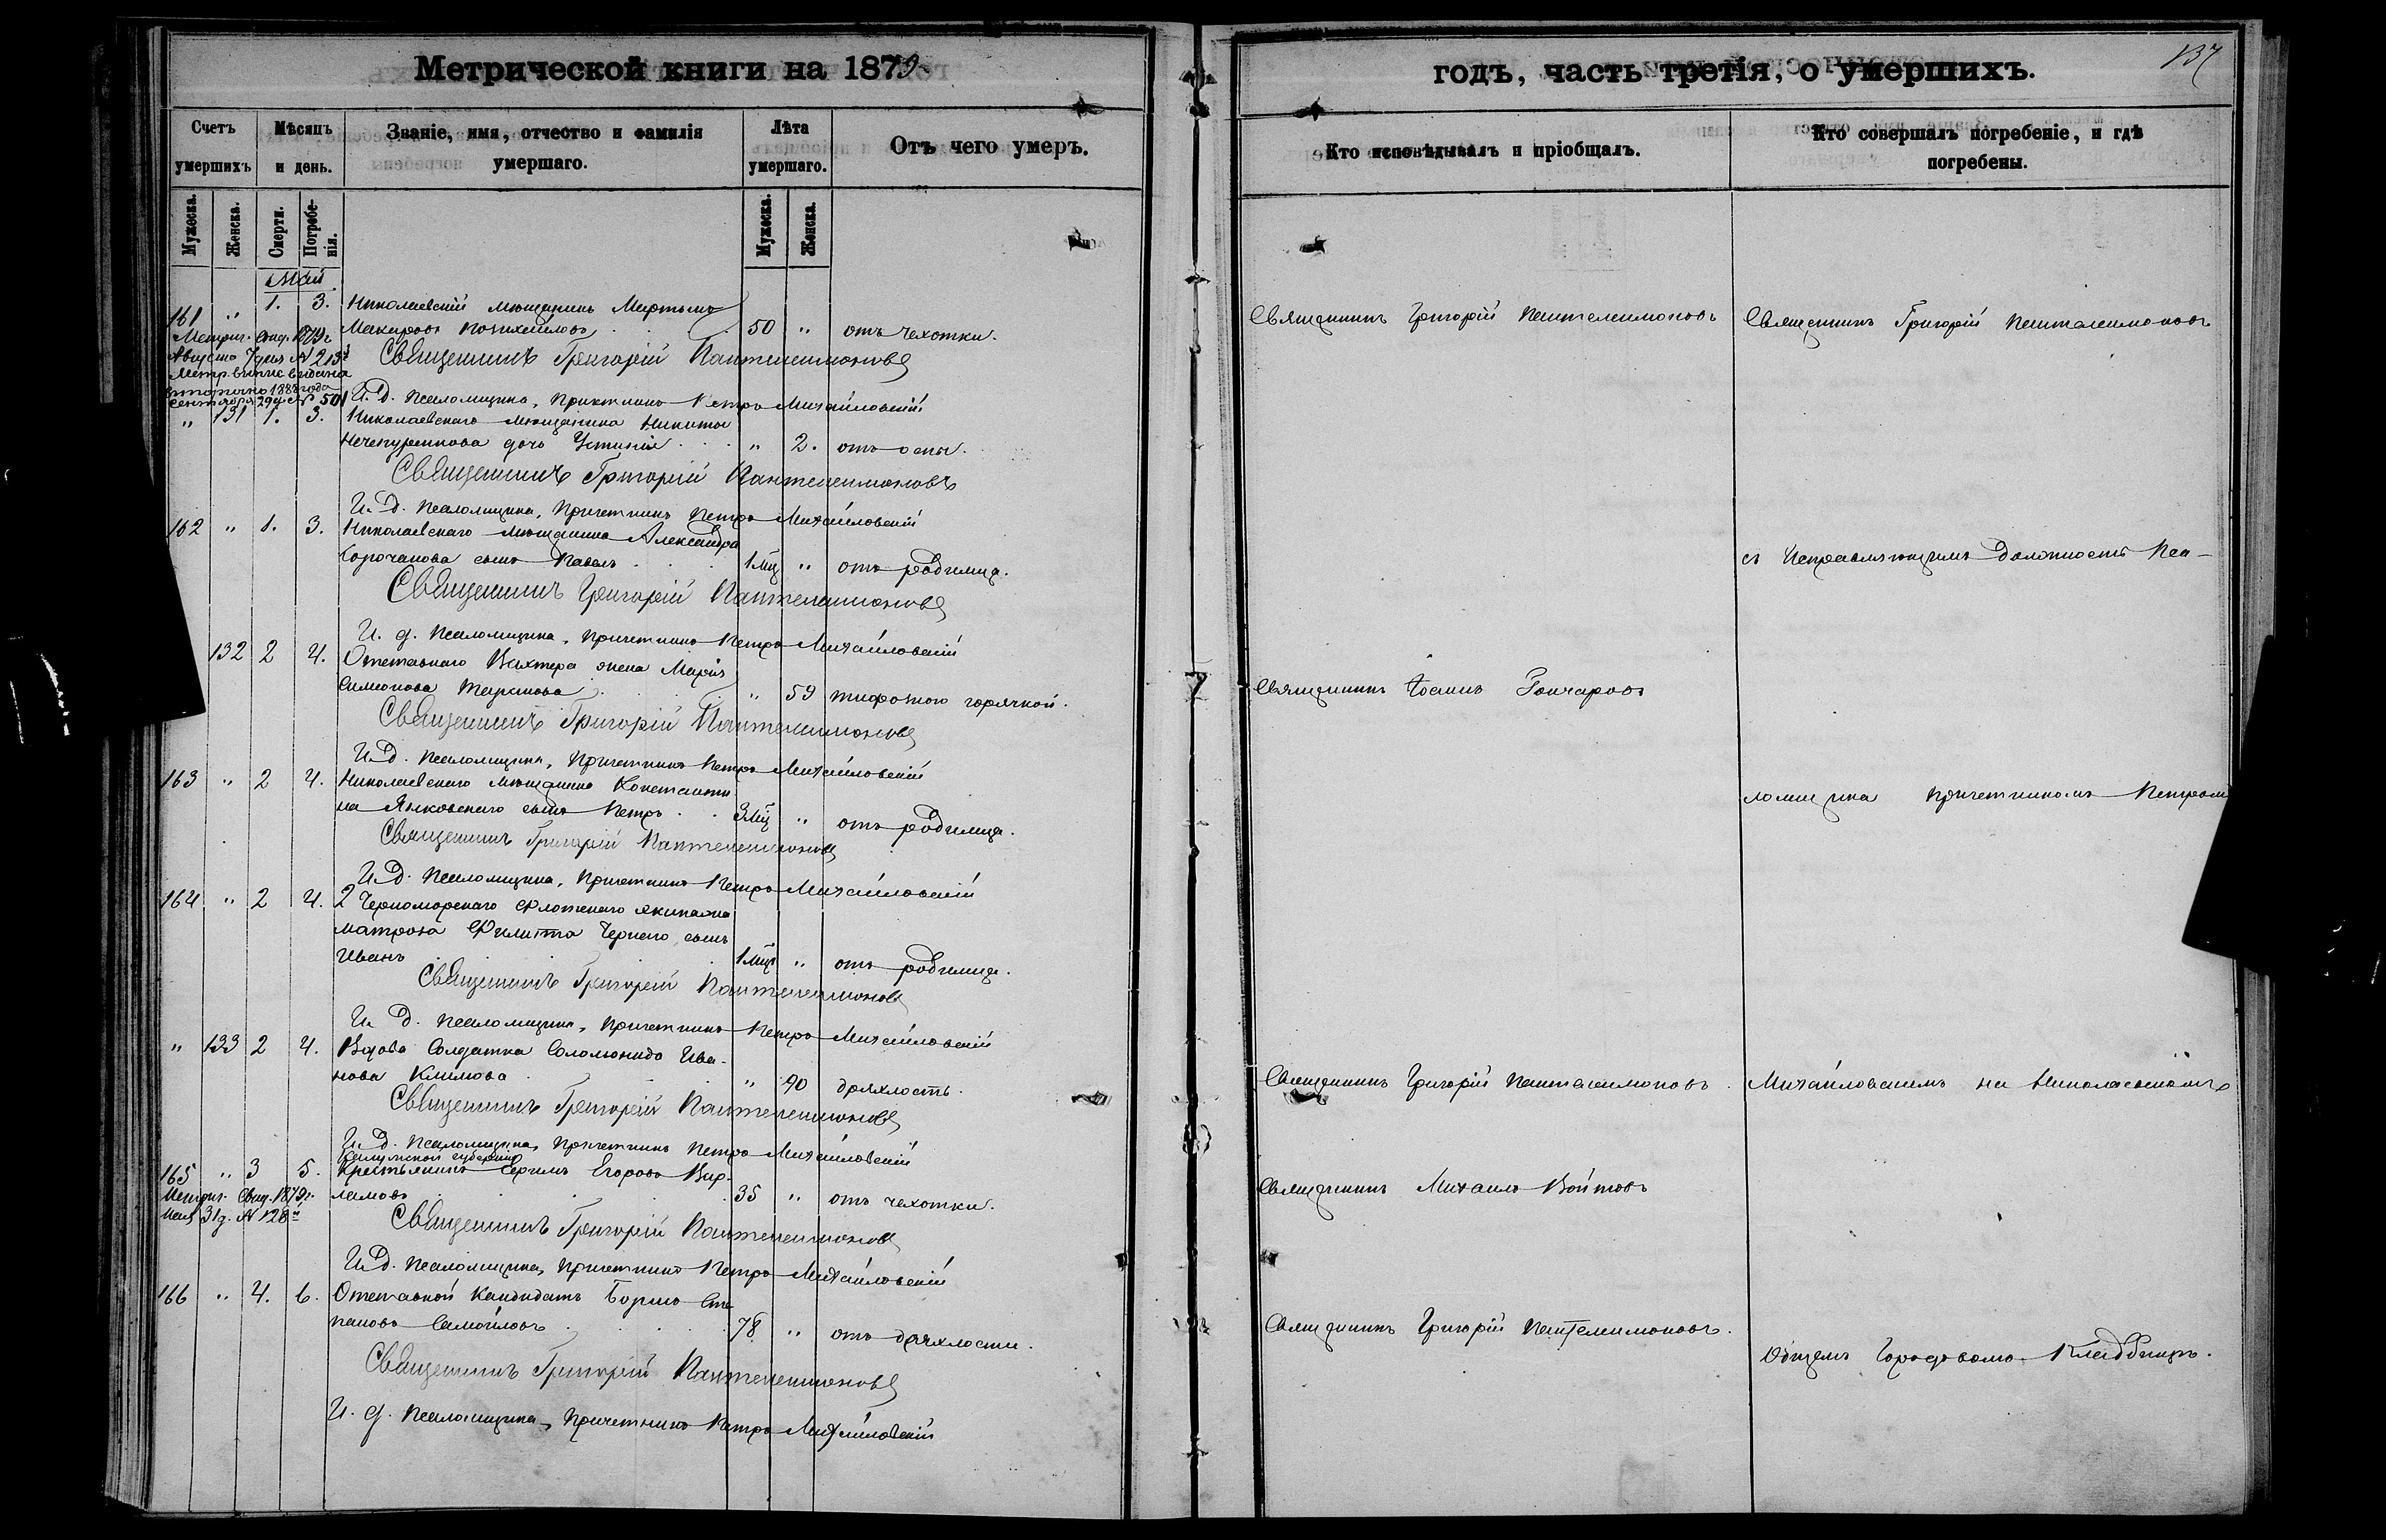 Метрической книги на 1879
годъ, часть третія, о умершихъ.
137
Счетъ умершихъ
Мѣсяцъ и день.
Званіе, имя, отчество и фамилія умершаго.
Лѣта умершаго.
Отъ чего умеръ.
Кто исповѣдывалъ и пріобщалъ.
Кто совершалъ погребеніе, и гдѣ погребены.
Мужеска.
Женска.
Смерти.
Погребенія.
Мужеска.
Женска.
Май
161 " 1. 3. Николаевскій мѣщанинъ Мартынъ
Макаровъ 50 " отъ чехотки.
Священникъ Григорій Пантелеимоновъ
Священникъ Григорій Пантелеимоновъ
Метрич. свид. 1879 г.
Августа 7 дня № 213
Метр. выпис. выдана
вторично 1888 года
Сентября 29 д. № 501
Священникъ Григорій Пантелеимоновъ
И. Д. Псаломщика, Причетникъ Петръ Михайловскій
" 131 1. 3. Николаевскаго мѣщанина Никиты
Нечепуренкова дочь Устинія " 2. отъ оспы.
Священникъ Григорій Пантелеимоновъ
И. Д. Псаломщика, Причетникъ Петръ Михайловскій
162 " 1. 3. Николаевскаго мѣщанина Александра
Корочанова сынъ Павелъ 1 мц " отъ родимца.
съ Исправляющимъ Должность Пса-
Священникъ Григорій Пантелеимоновъ
И. д. Псаломщика, Причетникъ Петръ Михайловскій
132 2 4. Отставнаго Вахтера жена Марія
Симеонова " 59 тифозною горячкой.
Священникъ Іоаннъ Гончаровъ
Священникъ Григорій Пантелеимоновъ
И. Д. Псаломщика, Причетникъ Петръ Михайловскій
163 " 2 4. Николаевскаго мѣщанина Константи
на Янковскаго сынъ Петръ 3 мц " отъ родимца.
ломщика Причетникомъ Петромъ
Священникъ Григорій Пантелеимоновъ
И. Д. Псаломщика, Причетникъ Петръ Михайловскій
164 " 2 4. 2 Черноморскаго Флотскаго экипажа
матроса Филиппа Чернаго сынъ
Иванъ 1 мцъ " отъ родимца.
Священникъ Григорій Пантелеимоновъ
И. Д. Псаломщика, Причетникъ Петръ Михайловскій
" 133 2 4. Вдова Солдатка Соломонида Ива-
нова Климова " 90 дряхлость.
Священникъ Григорій Пантелеимоновъ. Михайловскимъ на Николаевскомъ
Священникъ Григорій Пантелеимоновъ
И. Д. Псаломщика, Причетникъ Петръ Михайловскій
губерніи
165 " 3 5. Крестьянинъ Егоровъ Вар-
ламовъ 35 " отъ чехотки.
Священникъ Михаилъ Войтовъ
Метрич. свид. 1879 г.
Мая 31 д. № 128
Священникъ Григорій Пантелеимоновъ
И. Д. Псаломщика, Причетникъ Петръ Михайловскій
166 " 4. 6. Отставной Кандидатъ Борисъ Сте
пановъ Самойловъ 78 " отъ дряхлости.
Священникъ Григорій Пантелеимоновъ.
Общемъ Городовомъ Кладбищѣ.
Священникъ Григорій Пантелеимоновъ
И. д. Псаломщика, Причетникъ Петръ Михайловскій